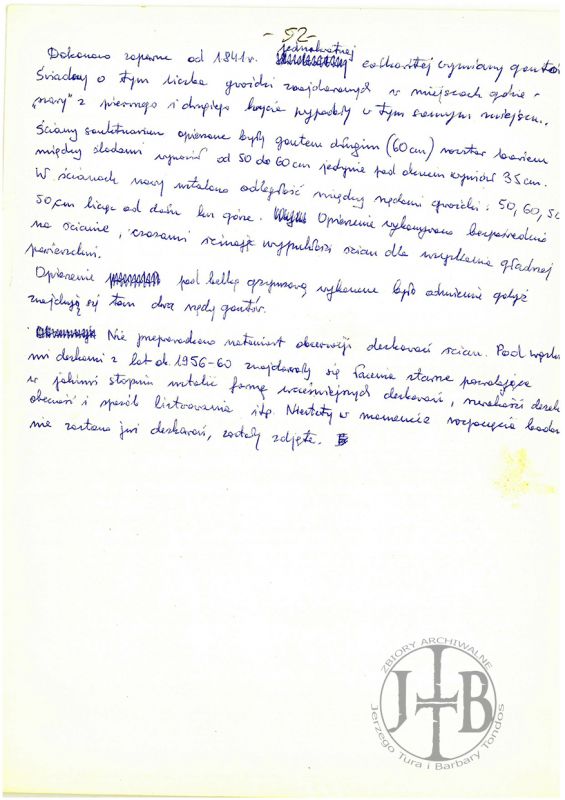 - 52 -
jednokrotnej
Dokonano zapewne od 1841 r. całkowitej wymiany gontów
Świadczy o tym liczba gwoździ znajdowanych w miejscach gdzie
"nawy" z pierwszego i drugiego krycia wypadały w tym samym miejscu.
Ściany sanktuarium opierzone były gontem długim (60 cm) rozstaw
między śladami wynosił od 50 do 60 cm jedynie pod oknem wynosił 35 cm.
W ścianach nawy ustalono odległość między rzędami gwoździ: 50, 60, 50
50 cm licząc od dołu ku górze. Opierzenie wykonywano bezpośrednio
na ścianie, czasami ścinając wypukłości ścian dla uzyskania gładkiej
powierzchni.
Opierzenie pod belką gzymsową wykonane było odmiennie gdyż
znajdują się tam dwa rzędy gontów.
Nie przeprowadzono natomiast obserwacji deskowań ścian. Pod
mi deskami z lat ok. 1956-60 znajdowały się starsze pozwalające
w jakimś stopniu ustalić formę wcześniejszych deskowań, szerokości desek
obecność i sposób listwowania itp. Niestety w momencie rozpoczęcia badań
nie zastano już deskowań, zostały zdjęte.
ZBIORY ARCHIWALNE
JTTB
Jerzego Tura i Barbary Tondos